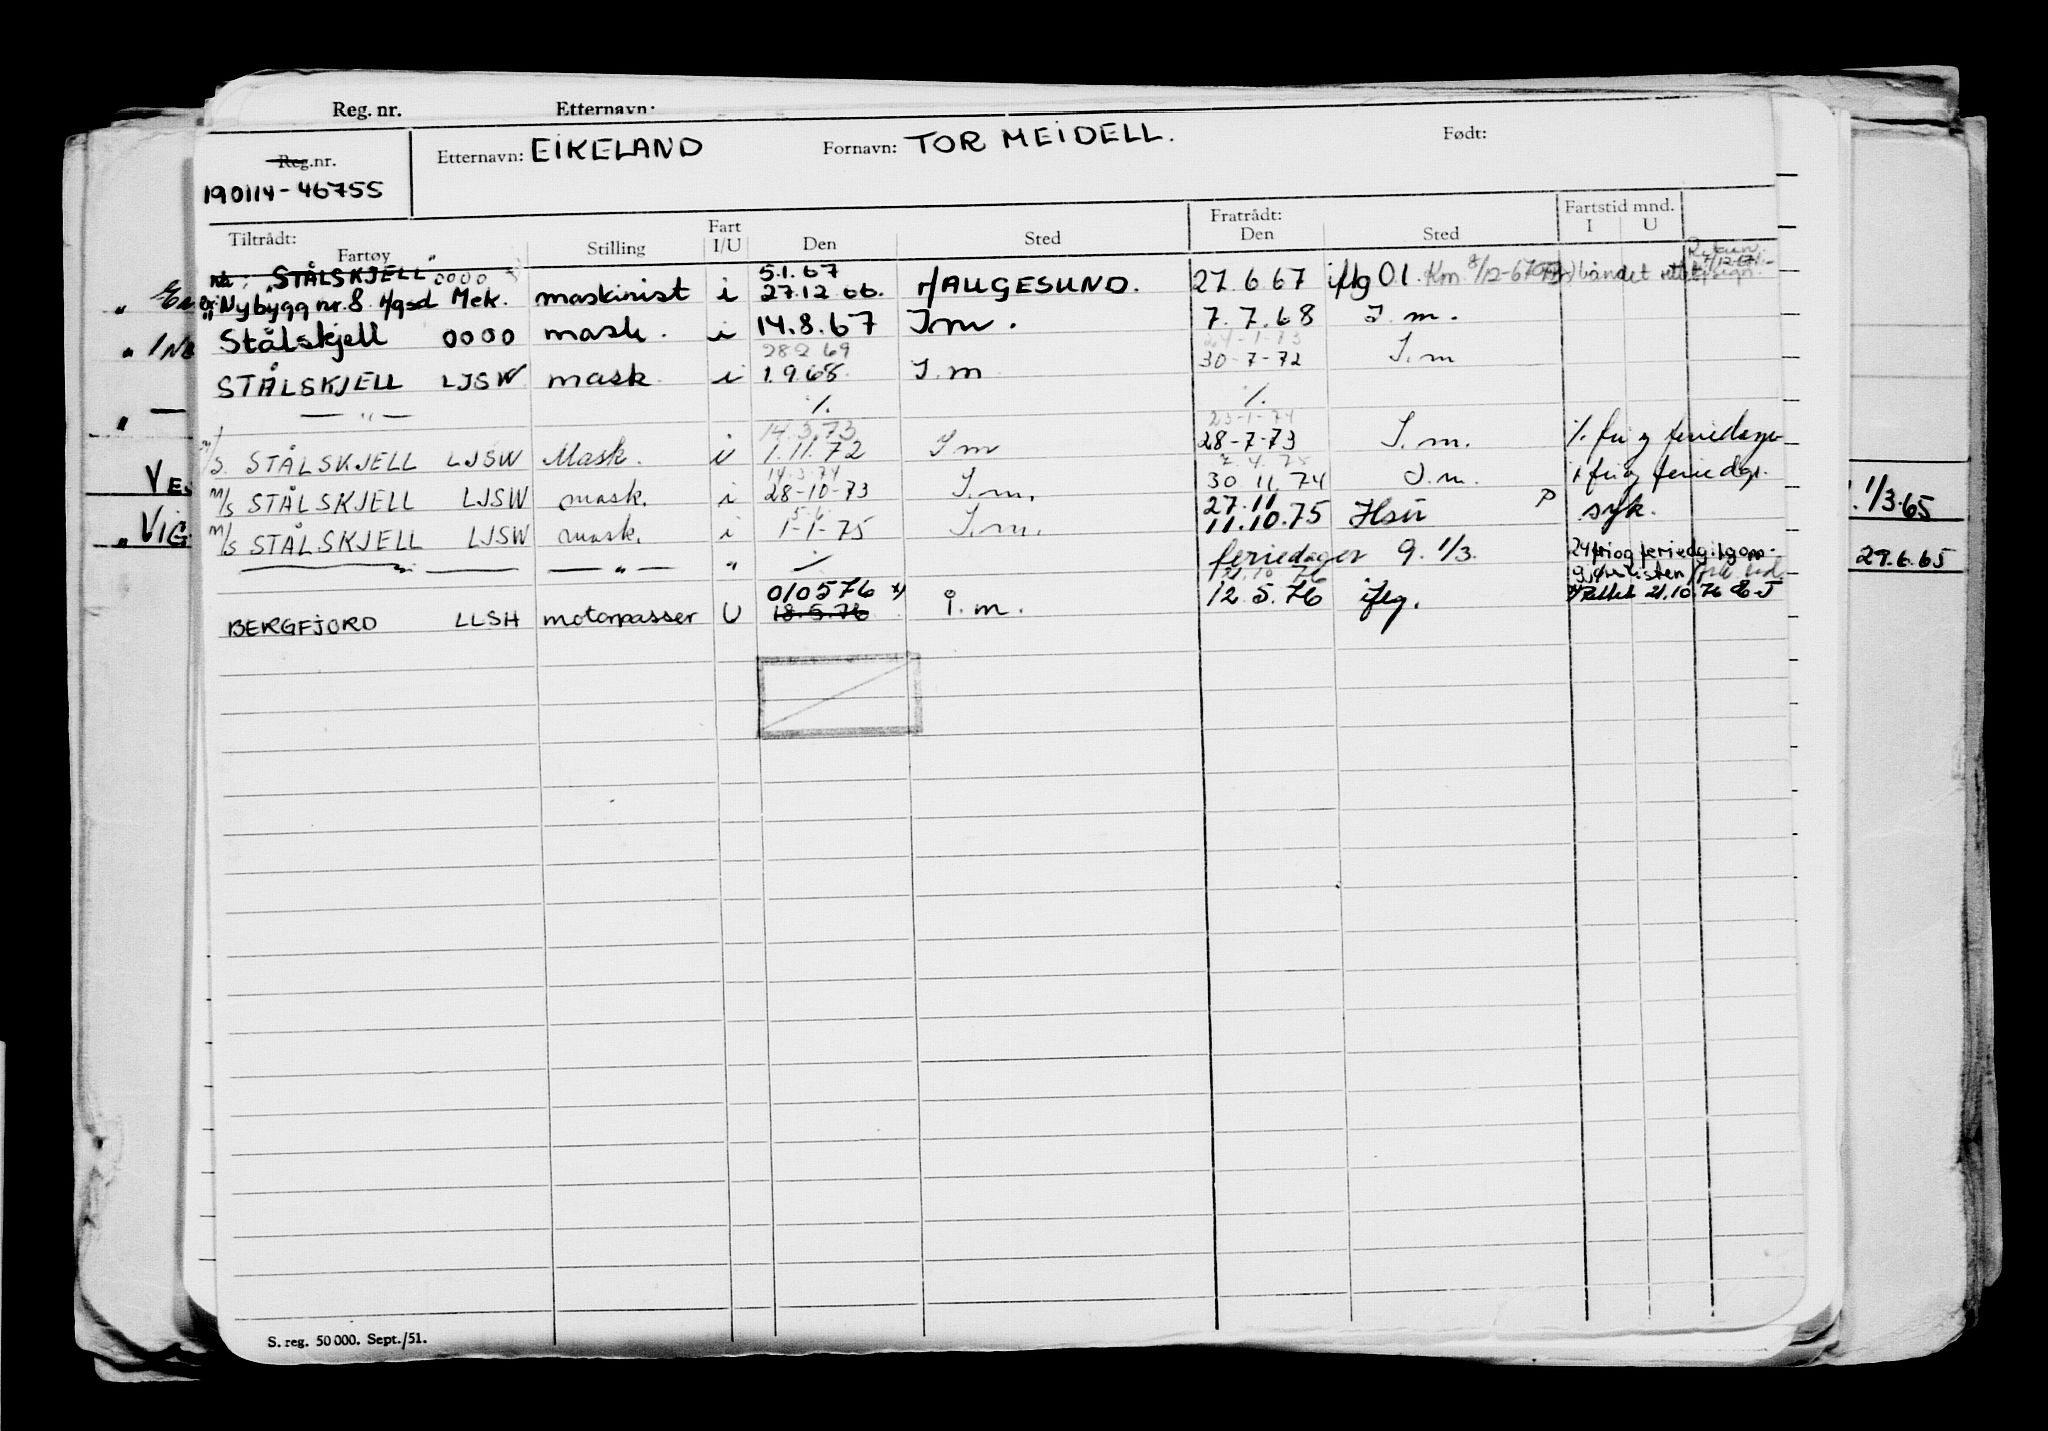 Reg. nr. Etternavn:
Reg.nr. Etternavn: EIKELAND Fornavn: TOR MEIDELL. Født:
190114-46755
Tiltrådt: Fart Fratrådt: Fartstid mnd.
Fartøy Stilling I/U Den Sted Den Sted I U
nå: "STÅLSKJELL" 0000 5.1.67
Nybygg nr. 8 H/gsd Mek. maskinist i 27.12 66. HAUGESUND. 27.6.67 iflg Ol. Km. 8/12-67
Stålskjell 0000 mask. i 14.8.67 I.m. 7.7.68 I.m.
28 2 69 24-1-73
STÅLSKJELL LJSW mask. i 1.9.68. I.m 30-7-72 I.m
— " — ⁒ ⁒
14.3.73 23-1-74
m/s. STÅLSKJELL LJSW Mask. i 1.11.72 I m 28-7-73 I.m. ⁒ fri og feriedager
14.3.74 2.4.75
m/s STÅLSKJELL LJSW mask. i 28-10-73 I.m. 30 11.74 I.m. ⁒ fri og feriedgr.
5.6. 27.11
m/s STÅLSKJELL LJSW mask. i 1-1-75 I.m. 11.10.75 P syk.
— " — — " — " ⁒ feriedager 9. 1/3. 24 fri og feriedg
010576 *) 21.10 76
BERGFJORD LLSH motorpasser U 18.5.76 i.m. 12.5.76 iflg. *) Rettet 21.10.76
VES
VIG
1/3.65
29.6.65
S. reg. 50 000. Sept./51.